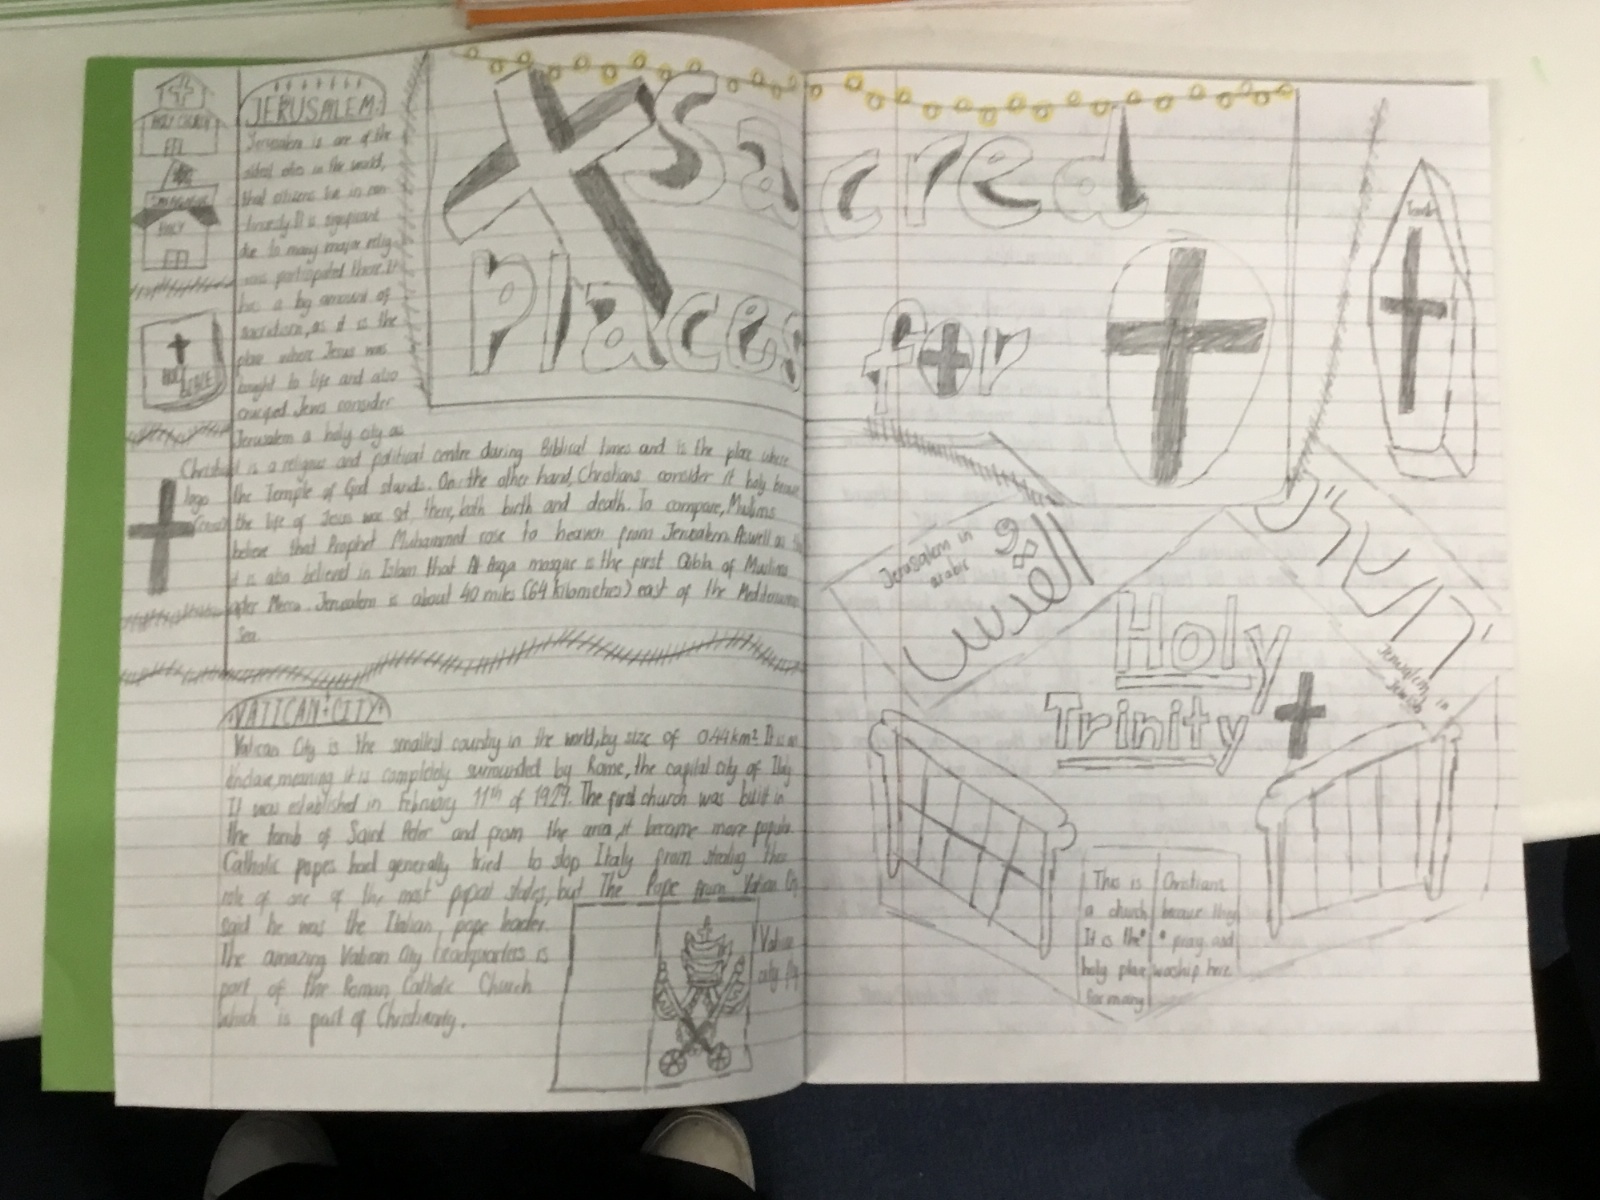 HOLY CHURCH
SYNAGOGUE
HOLY
HOLY
BIBLE
JERUSALEM:
Jerusalem is one of the
oldest cities in the world,
that citizens live in con
It is significant
due to many major relig
was participated there. It
has a big amount of
as it is the
place where Jesus was
bought to life and also
Jews consider
Jerusalem a holy city as
it is a religious and political centre during Biblical times and is the place where
the Temple of God stands. On the other hand, Christians consider it holy because
the life of Jesus was set there, both birth and death. To compare, Muslims
believe that Prophet Muhammad rose to heaven from Jerusalem. Aswell as
it is also believed in Islam that Al Aqsa mosque is the first Qibla of Muslims
after Mecca. Jerusalem is about 40 miles (64 kilometres) east of the Mediterranean
Sea.
logo
(cross)
VATICAN CITY
Vatican City is the smallest country in the world, by size of 0.44 km². It is an
enclave, meaning it is completely surrounded by Rome, the capital city of Italy.
It was established in February 11th of 1929. The first church was built in
the tomb of Saint Peter and from the area, it became more popular.
Catholic popes had generally tried to stop Italy from their
role of one of the most papal states, but The Pope from Vatican City
said he was the Italian, pope leader.
The amazing Vatican City headquarters is
part of the Roman Catholic Church
which is part of Christianity.
Vatican
city flag
Sacred
Places
for
Jerusalem in
arabic
القدس
Jerusalem in
Jewish
Holy
Trinity
This is
a church
It is the
holy place
for many
Christians
because they
pray and
worship here